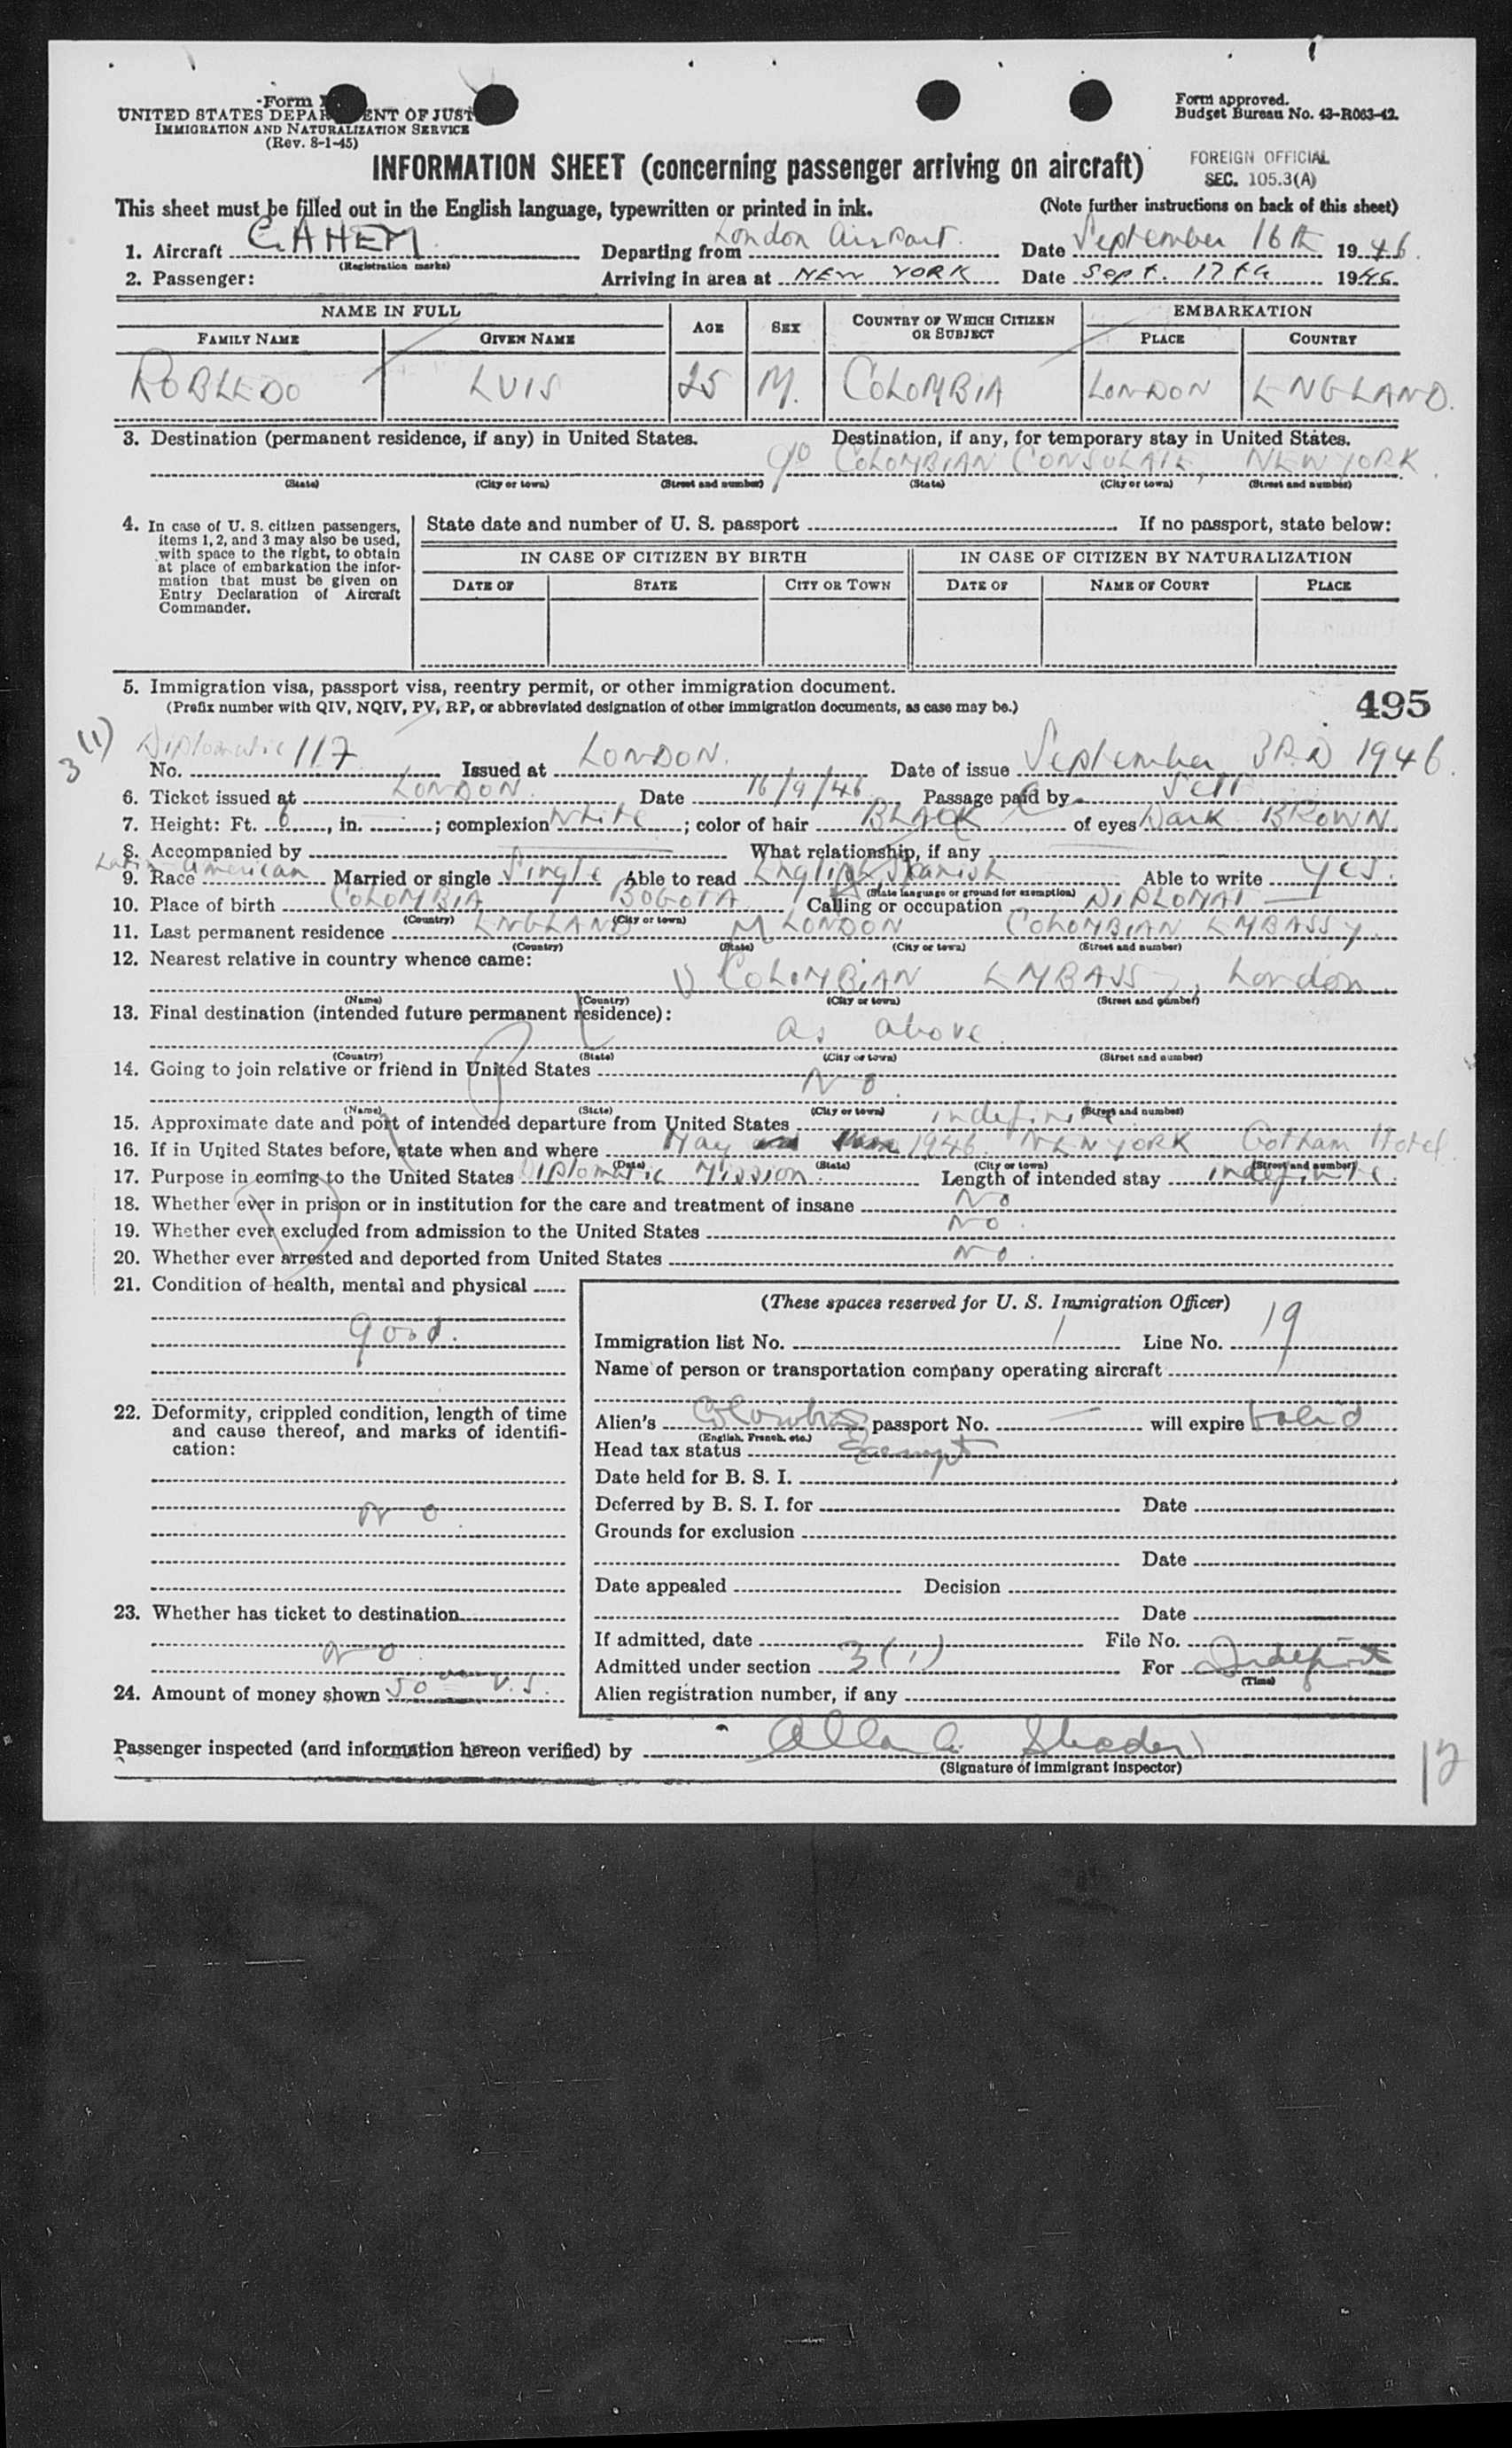 Form
UNITED STATES DEPARTMENT OF JUST
IMMIGRATION AND NATURALIZATION SERVICE
(Rev. 8-1-45)
Form approved.
Budget Bureau No. 43-R063-42.
INFORMATION SHEET (concerning passenger arriving on aircraft)
FOREIGN OFFICIAL
SEC. 105.3(A)
This sheet must be filled out in the English language, typewritten or printed in ink. (Note further instructions on back of this sheet)
1. Aircraft GAHEM Departing from London Airport. Date September 16th 1946.
(Registration marks)
2. Passenger: Arriving in area at NEW YORK Date Sept. 17th 1946.
NAME IN FULL AGE SEX COUNTRY OF WHICH CITIZEN OR SUBJECT EMBARKATION
FAMILY NAME GIVEN NAME PLACE COUNTRY
ROBLEDO LUIS 25 M. COLOMBIA LONDON ENGLAND.
3. Destination (permanent residence, if any) in United States. Destination, if any, for temporary stay in United States.
c/o COLOMBIAN CONSULATE, NEW YORK.
(State) (City or town) (Street and number) (State) (City or town) (Street and number)
4. In case of U. S. citizen passengers, items 1, 2, and 3 may also be used, with space to the right, to obtain at place of embarkation the information that must be given on Entry Declaration of Aircraft Commander.
State date and number of U. S. passport If no passport, state below:
IN CASE OF CITIZEN BY BIRTH IN CASE OF CITIZEN BY NATURALIZATION
DATE OF STATE CITY OR TOWN DATE OF NAME OF COURT PLACE
5. Immigration visa, passport visa, reentry permit, or other immigration document.
(Prefix number with QIV, NQIV, PV, RP, or abbreviated designation of other immigration documents, as case may be.)
495
3(1)
Diplomatic
No. 117 Issued at LONDON. Date of issue September 3RD 1946.
6. Ticket issued at LONDON. Date 16/9/46 Passage paid by Self
7. Height: Ft. 6, in. —; complexion White; color of hair BLACK of eyes Dark BROWN.
8. Accompanied by What relationship, if any
9. Race Latin American Married or single Single Able to read English, Spanish Able to write yes.
(State language or ground for exemption)
10. Place of birth COLOMBIA BOGOTA Calling or occupation DIPLOMAT
(Country) (City or town)
11. Last permanent residence ENGLAND LONDON COLOMBIAN EMBASSY.
(Country) (State) (City or town) (Street and number)
12. Nearest relative in country whence came:
COLOMBIAN EMBASSY, London
(Name) (Country) (City or town) (Street and number)
13. Final destination (intended future permanent residence):
as above.
(Country) (State) (City or town) (Street and number)
14. Going to join relative or friend in United States
No.
(Name) (State) (City or town) (Street and number)
15. Approximate date and port of intended departure from United States indefinite
16. If in United States before, state when and where May 1946. NEW YORK Gotham Hotel.
(Date) (State) (City or town) (Street and number)
17. Purpose in coming to the United States Diplomatic Mission. Length of intended stay indefinite.
18. Whether ever in prison or in institution for the care and treatment of insane No
19. Whether ever excluded from admission to the United States No.
20. Whether ever arrested and deported from United States No.
21. Condition of health, mental and physical
good.
22. Deformity, crippled condition, length of time and cause thereof, and marks of identification:
No.
23. Whether has ticket to destination
No.
24. Amount of money shown 50 U.S.
(These spaces reserved for U. S. Immigration Officer)
Immigration list No. 1 Line No. 19
Name of person or transportation company operating aircraft
Alien's Colombia passport No. — will expire valid
(English, French, etc.)
Head tax status Exempt
Date held for B. S. I.
Deferred by B. S. I. for Date
Grounds for exclusion
Date
Date appealed Decision
Date
If admitted, date File No.
Admitted under section 3(1) For Indefinite
(Time)
Alien registration number, if any
Passenger inspected (and information hereon verified) by
(Signature of immigrant inspector)